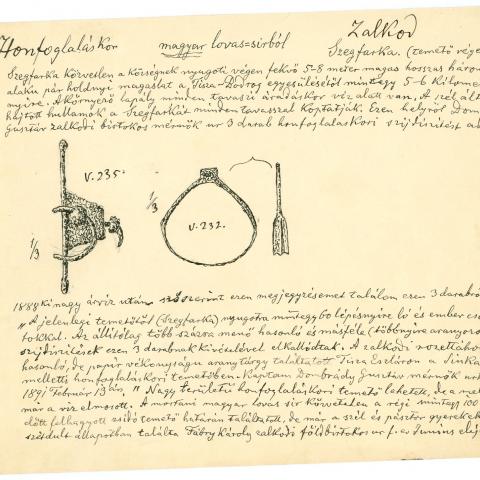 Honfoglaláskor magyar lovas=sirból Zalkod
Szegfarka. (temető vége
Szegfarka közvetlen a községnek nyugoti végen fekvő 5-8 méter magas hosszas három
alaku pár holdnyi magaslat a Tisza-Bodrog egyesülésétől mintegy 5-6 Kilome
nyire. A környező lapály minden tavaszi áradáskor víz alatt van. A szél ált
hajtott hullámok a Szegfarkát minden tavasszal koptatják. Ezen helyről Dom
Gusztáv zalkodi birtokos mérnök ur 3 darab honfoglaláskori szijdiszítést a
V. 235.
1/3
1/3
V. 232.
1888 Ki nagy árviz után szószerint ezen megjegyzésemet találom ezen 3 darabról
"A jelenlegi temetőtől (Szegfarka) nyugotra mintegy 60 lépésnyire ló és ember cso
tokkal. Az állitólag több százra menő hasonló és másféle (többnyire aranyoro
szijdiszitések ezen 3 darabnak kivételével elkallódtak. A zalkodi rozettához
hasonló, de papir vékonyságu aranytárgy találtatott Tisza Eszláron a Sinka
melletti honfoglaláskori temetőben. Kaptam Dombrády Gusztáv mérnök urt
1891 Február 13án. " Nagy területű honfoglaláskori temető lehetett, de a me
már a víz elmosott. A mostani magyar lovas sir közvetlen a régi mintegy 100
előtt felhagyott zsidó temető határán találtatott, de már a szél és pásztor gyerekek
szétdult állapotban találta Fábry Károly zalkodi földbirtokos ur f. év Junius elej